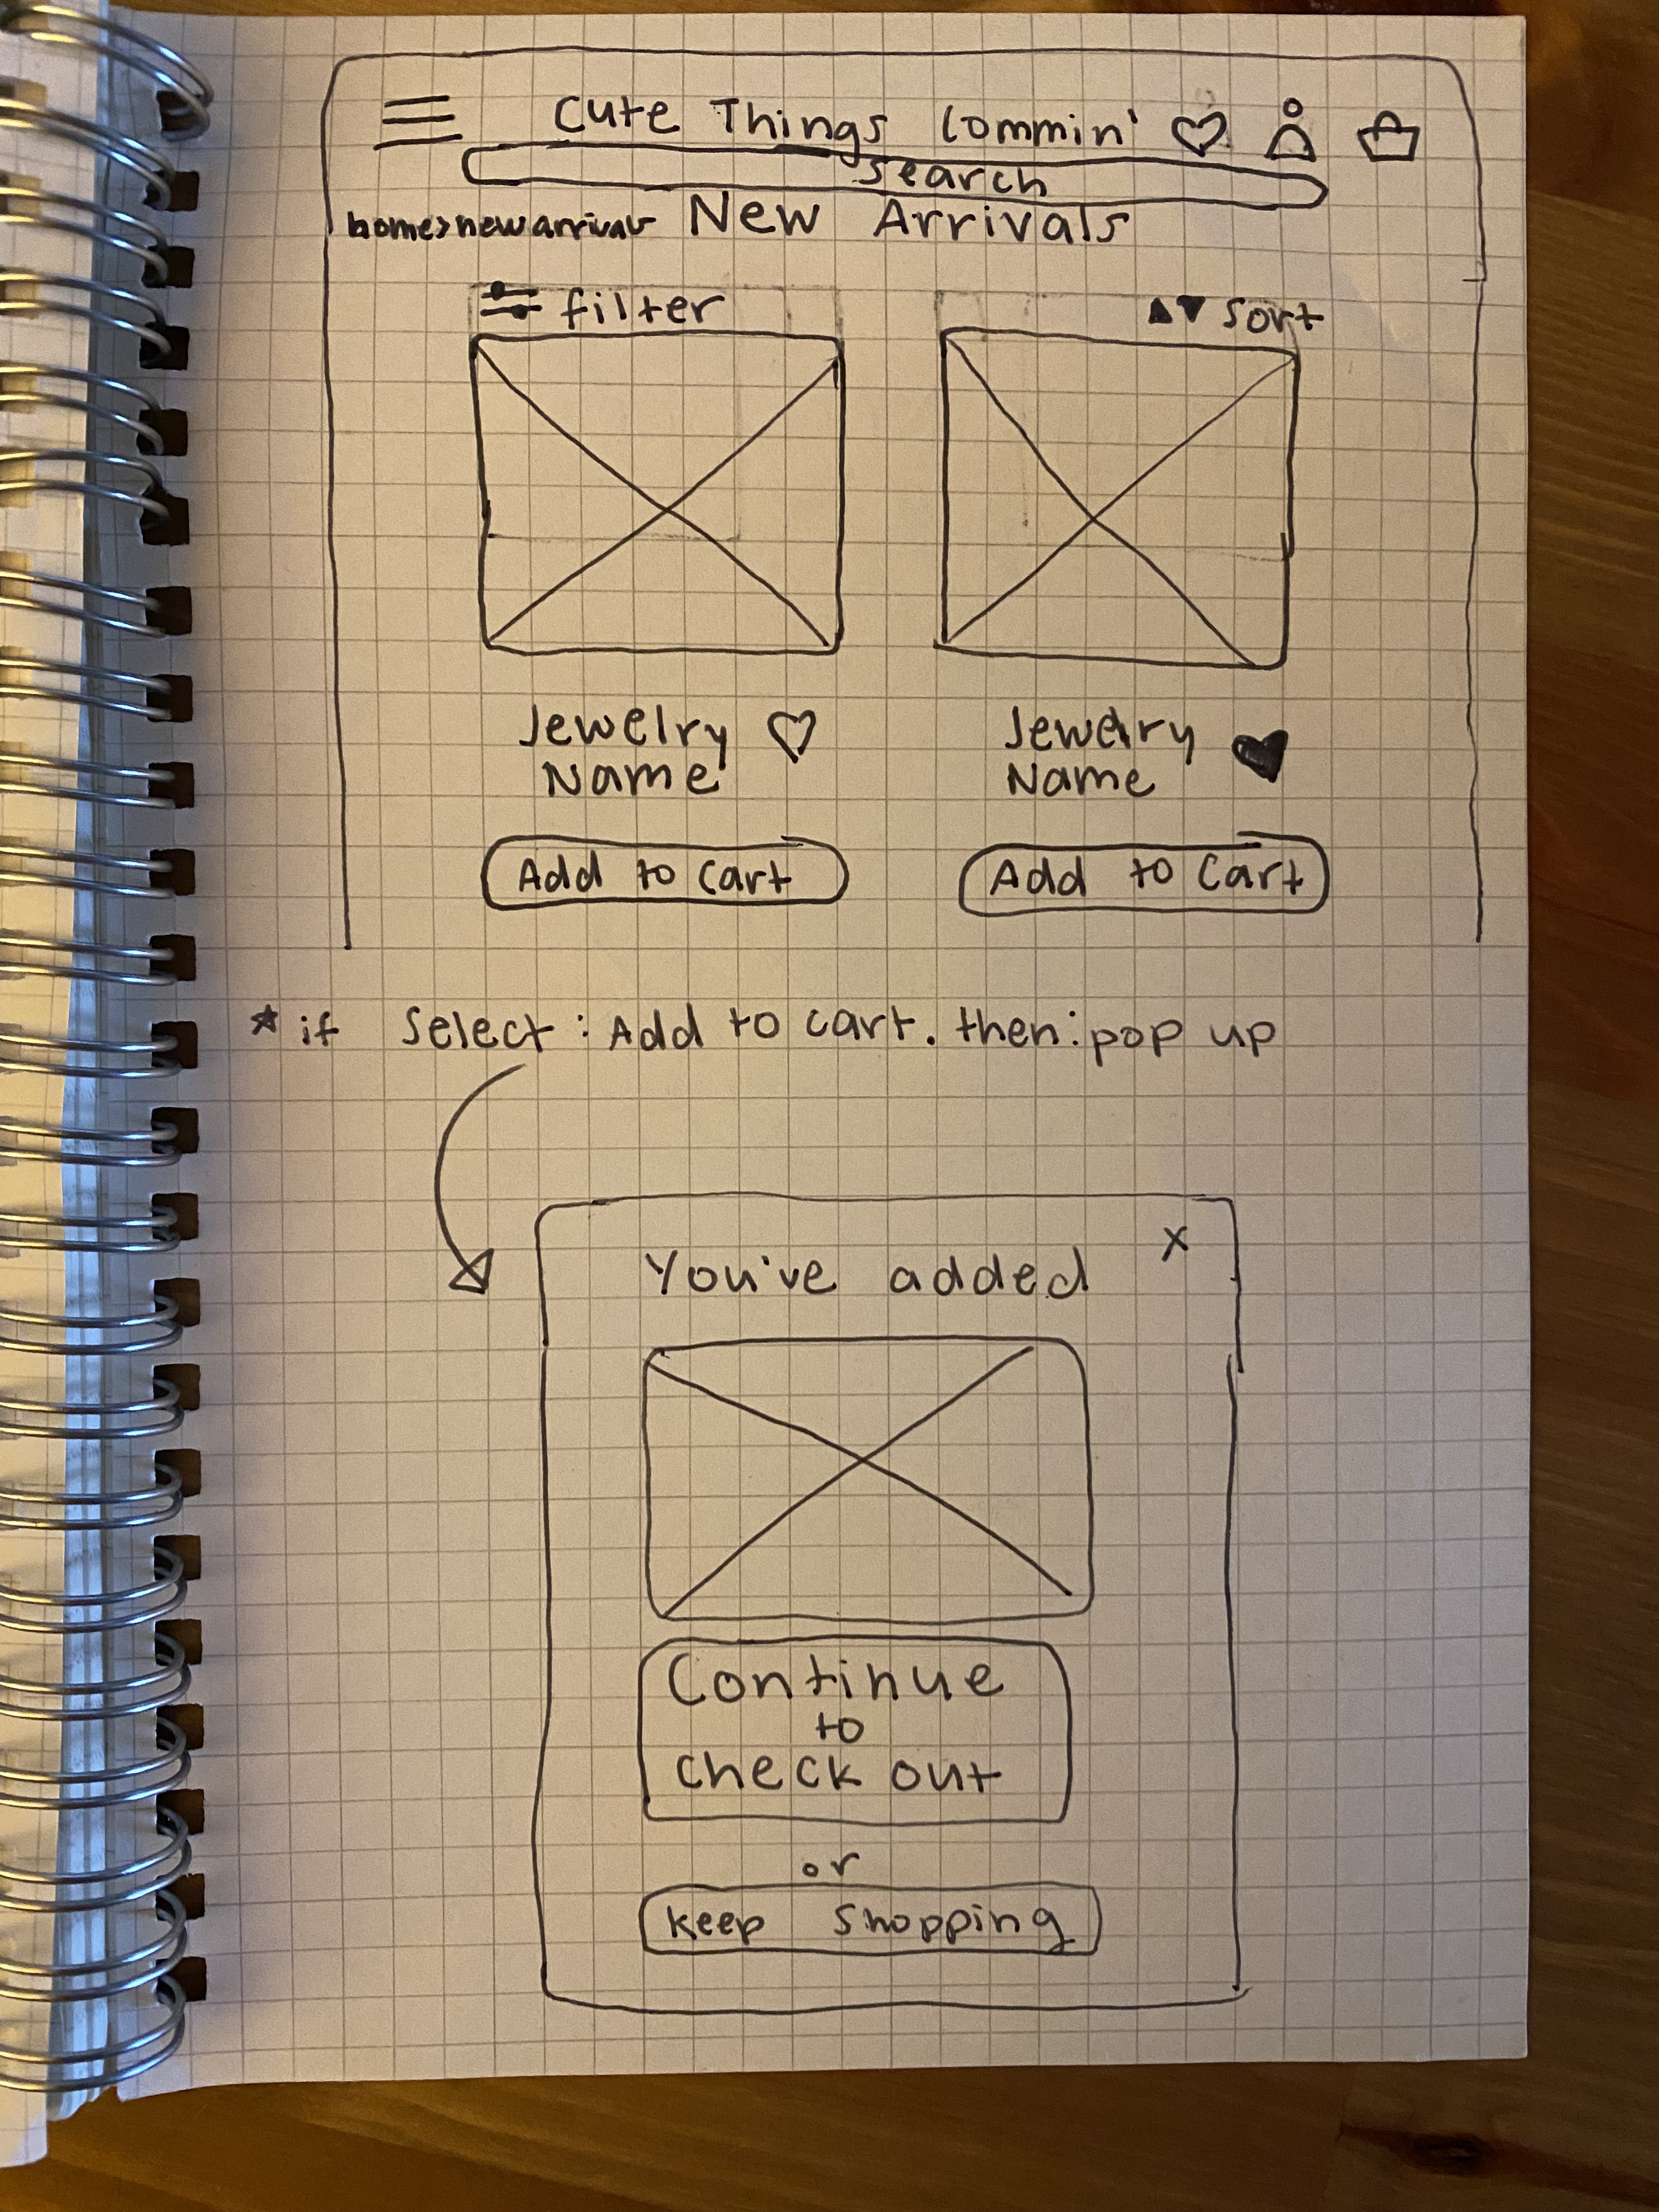 Cute Things Commin'
search
home>new arrival New Arrivals
filter
sort
Jewelry
Name
Jewelry
Name
Add to Cart
Add to Cart
* if Select: Add to cart. then: pop up
X
You've added
Continue
to
check out
or
keep shopping